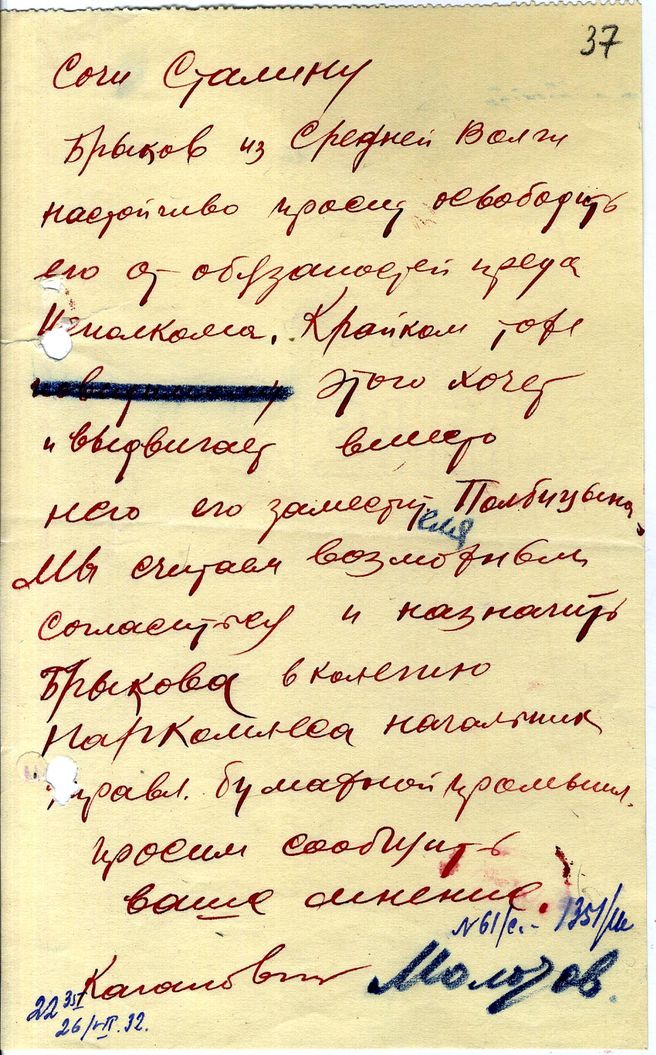 37
Сочи Сталину
Брыков из Средней Волги
настойчиво просит освободить
его от обязаностей преда
Исполкома. Крайком тоже
этого хочет
и выдвигает вместо
него его заместителя Полбицына.
Мы считаем возможным
согласиться и назначить
Брыкова в колегию
Наркомлеса начальник
управл. бумажной промышл.
просим сообщить
ваше мнение.
№61/с. - 1351/ш
Каганович Молотов.
22 35
26/VII.32.